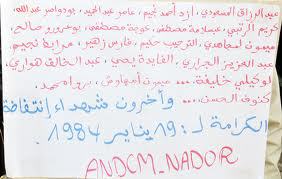 عبد الرزاق السعودي، أزد أحمد نجيم، عامر عبد الحميد، بودواسر عبد الله،
كريم الرتبي، عبسلامة مصطفى، خوية مصطفى، بوعرورو صالح،
ميمون لمجاهدي، الترحيب حليم، فارس زهير، مرابط نجيم،
عبد العزيز الجراري، القايدة يحي، عبد الخالق هواري،
لوكيلي خليفة... ميمون أمهاوش، محمد
كنوف الحسن... وآخرون شهداء إنتفاضة
الكرامة لـ: 19 يناير 1984.
ANDCM_NADOR